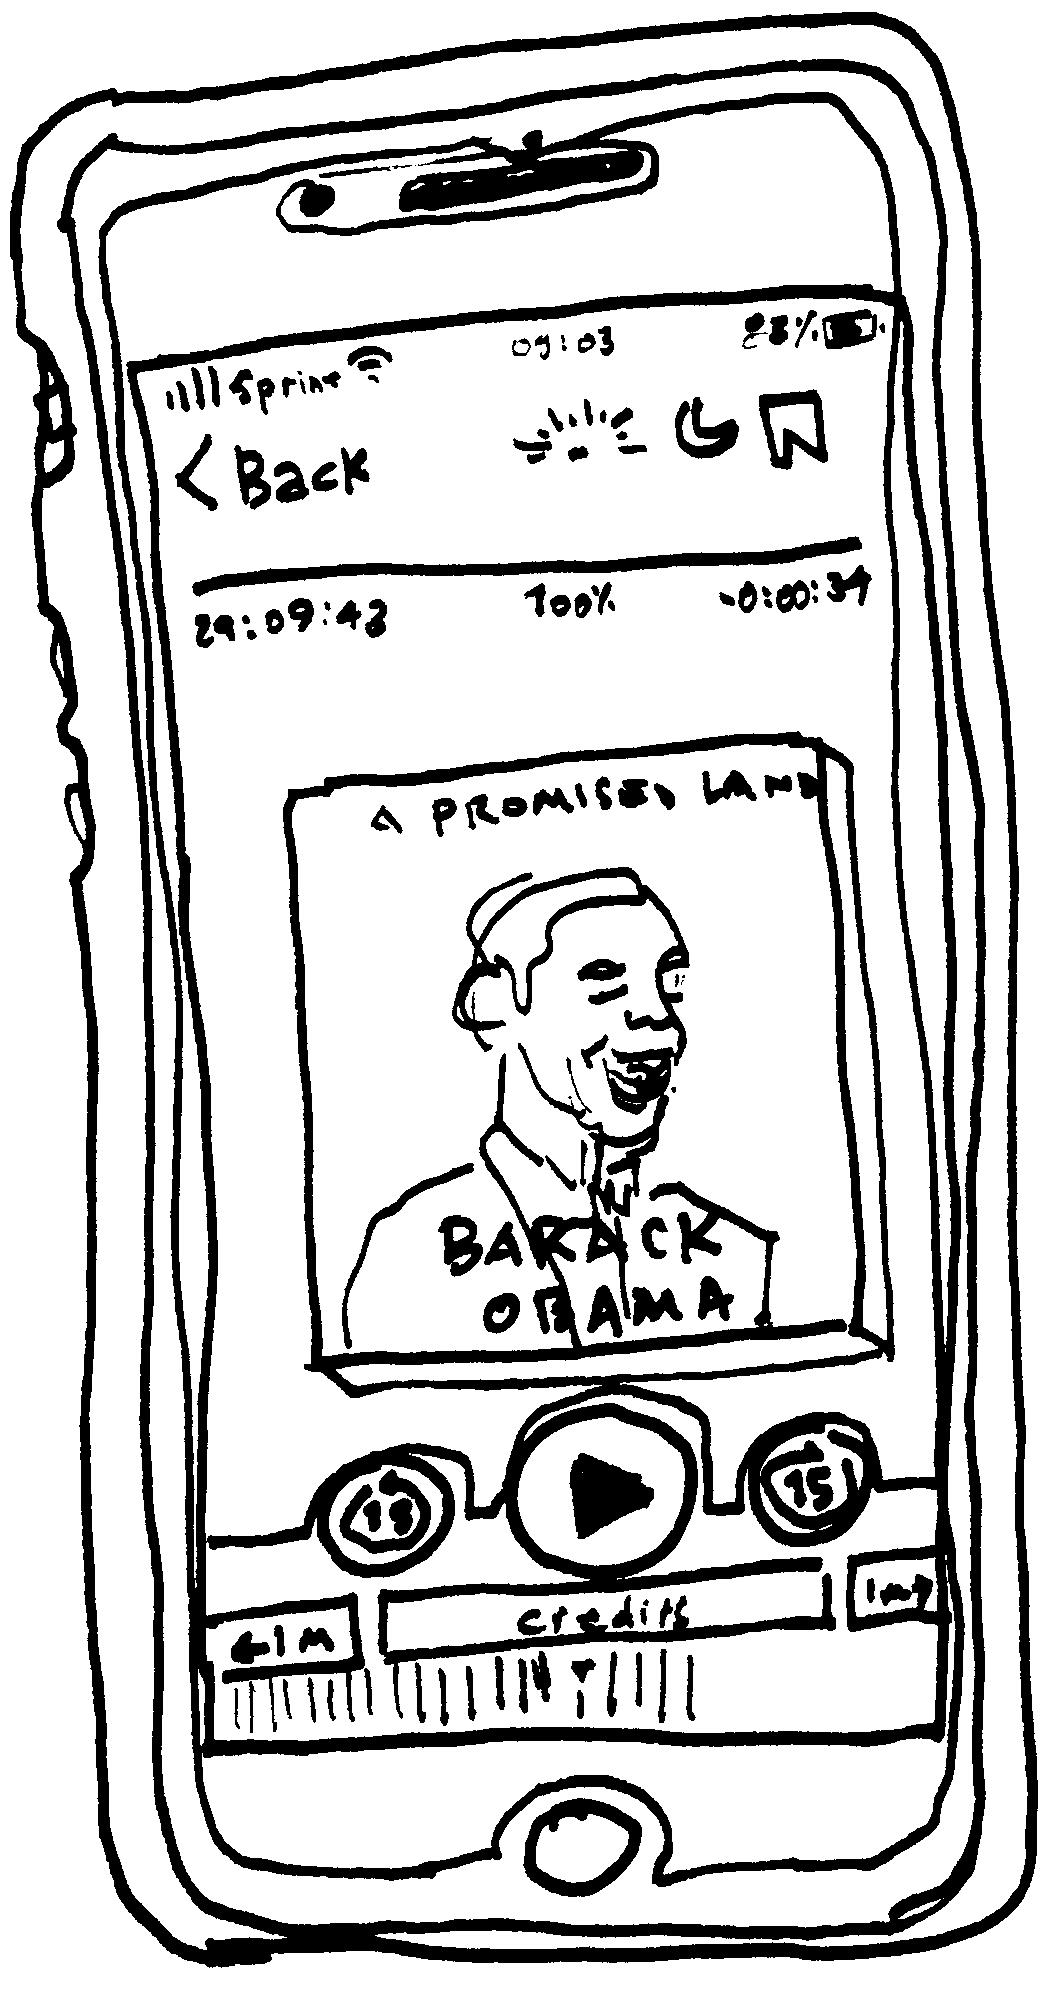 Sprint 09:03 88%
< Back
29:09:42 100% -0:00:34
A PROMISED LAND
BARACK
OBAMA
15 15
←1M credits 1m→